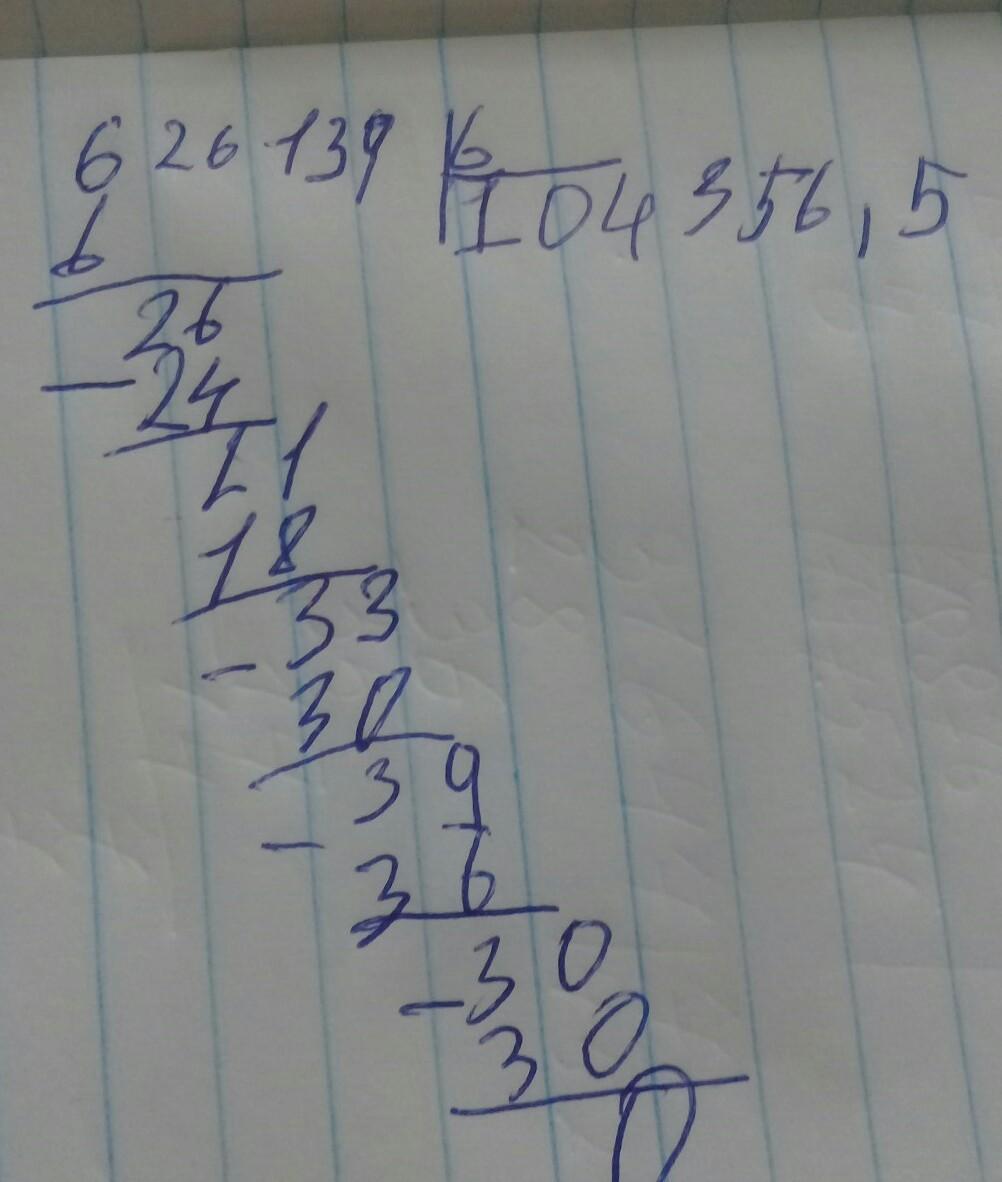 626 139 6
6 104 356,5
26
- 24
21
18
33
- 30
39
- 36
30
- 30
0